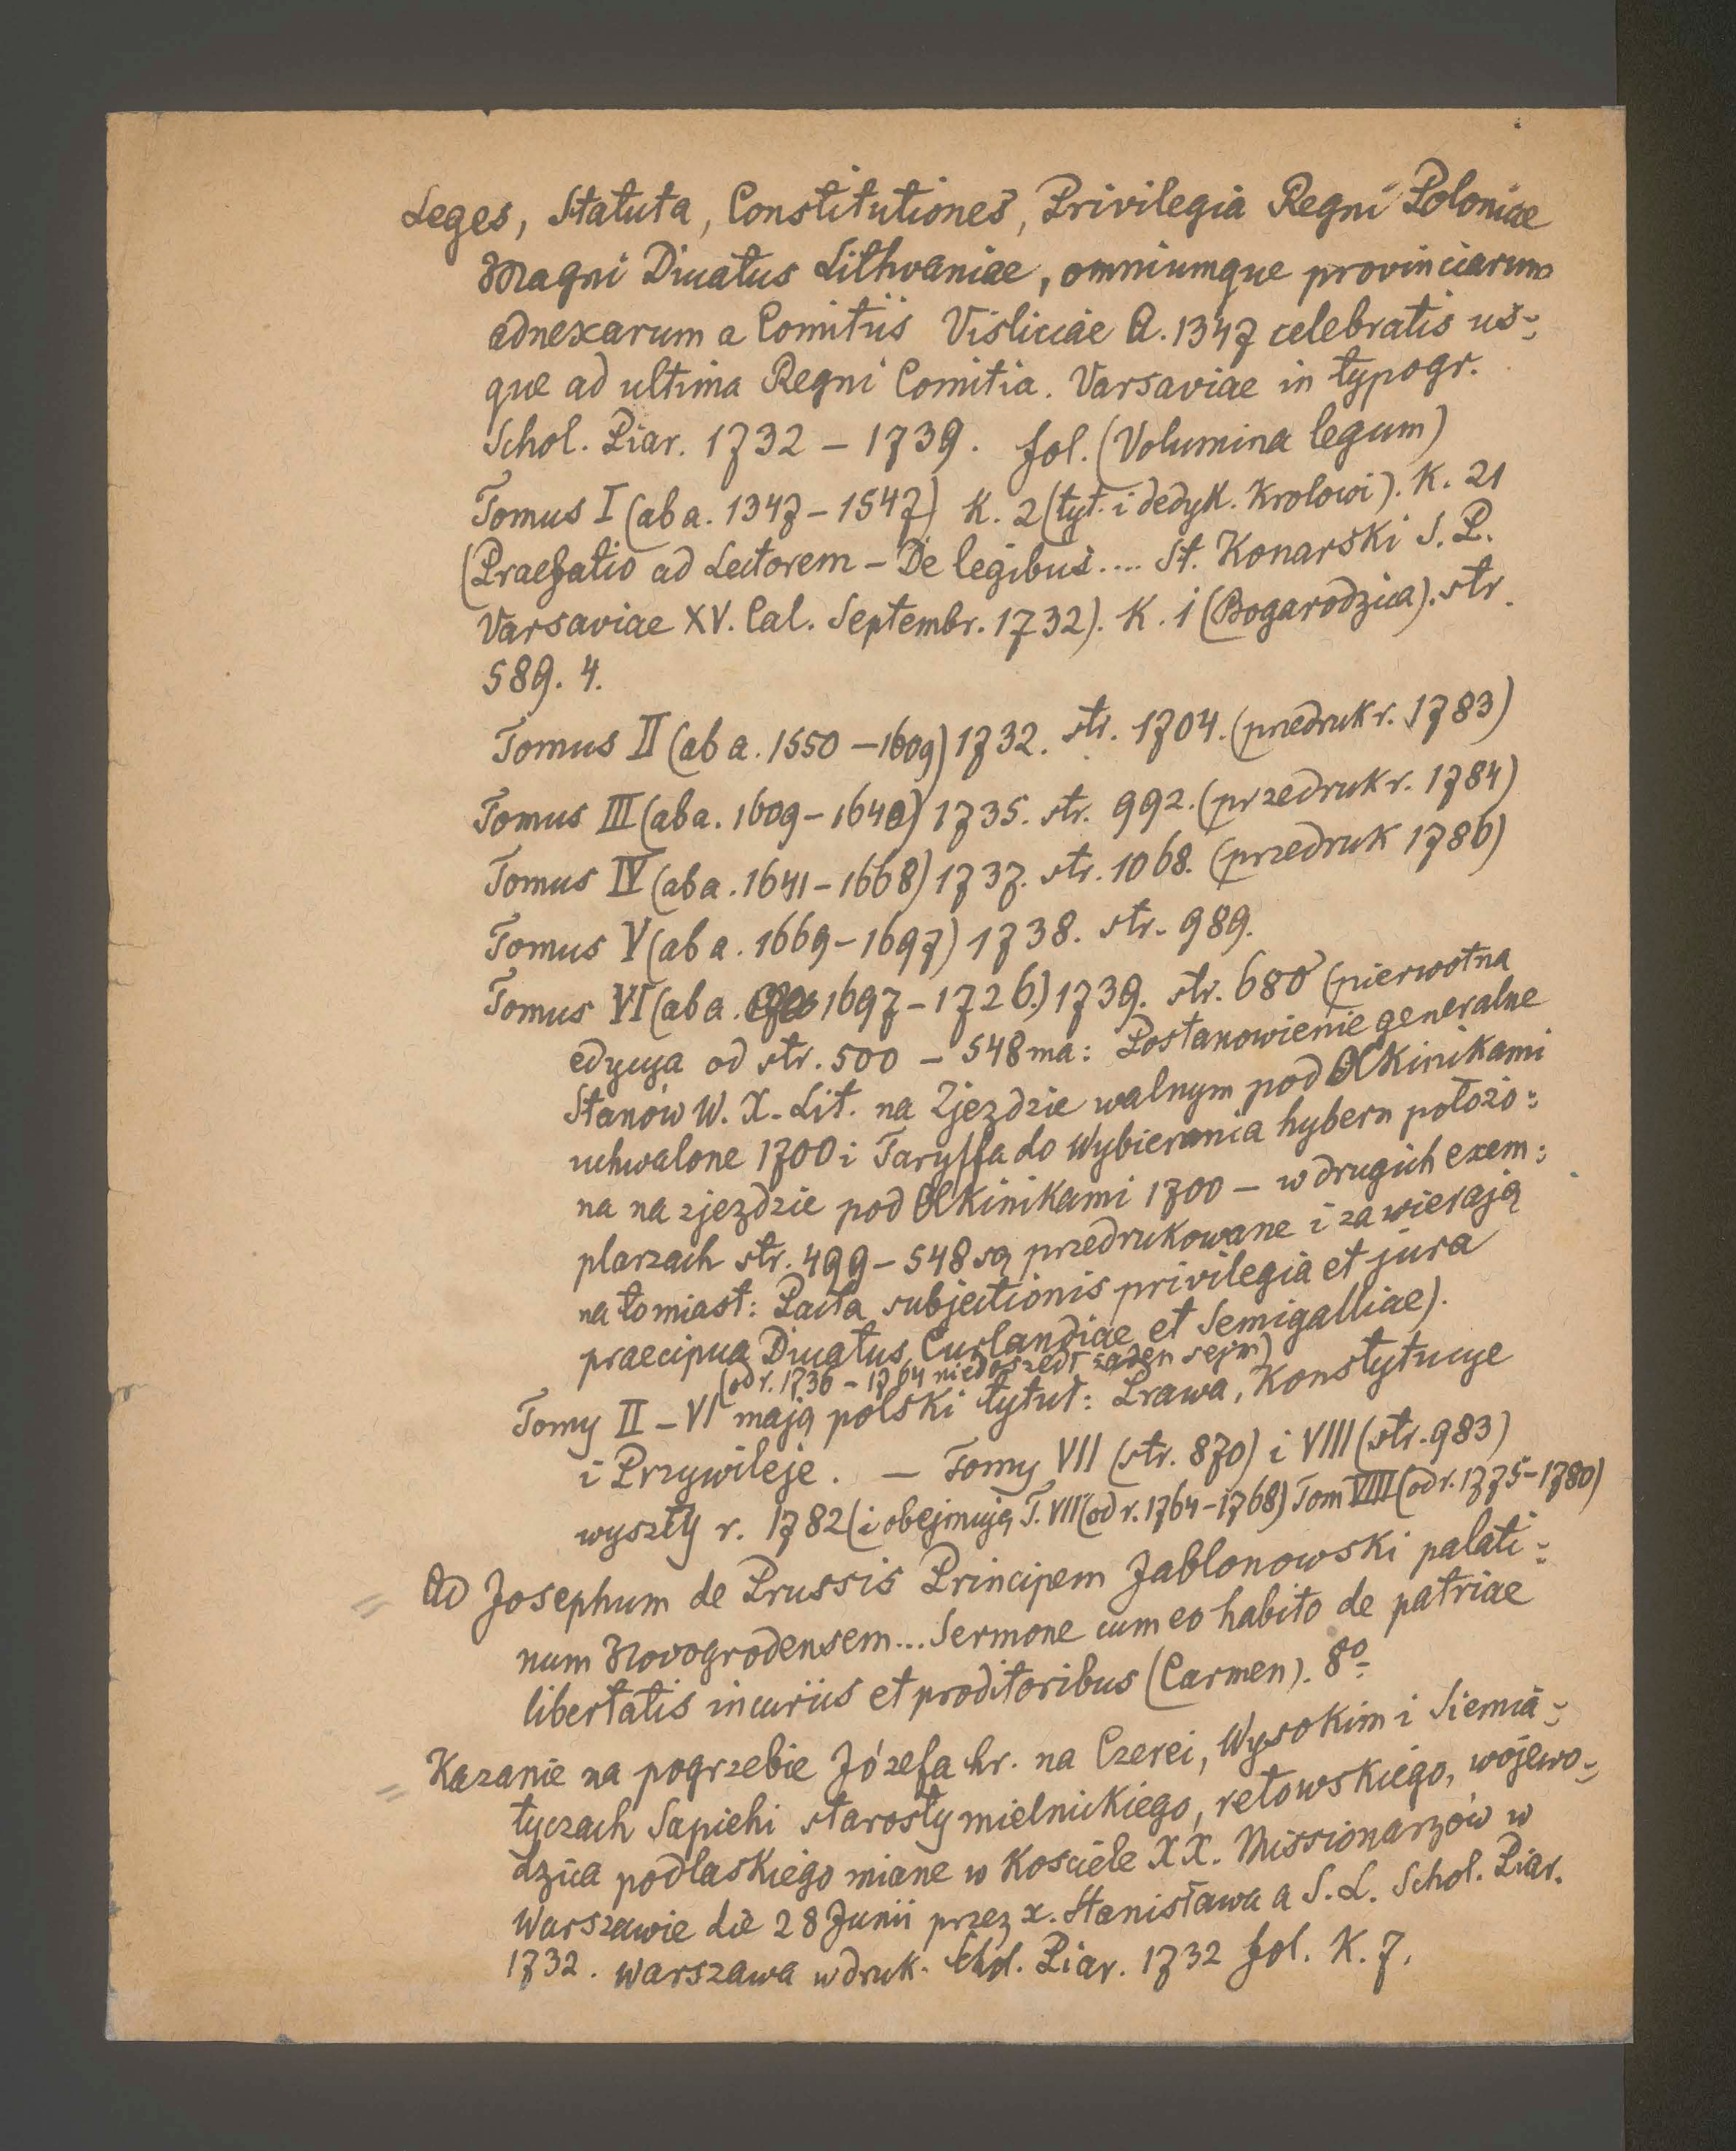 Leges, Statuta, Constitutiones, Privilegia Regni Poloniae
Magni Ducatus Lithvaniae, omniumque provinciarum
adnexarum a Comitiis Visliciae A. 1347 celebratis us=
que ad ultima Regni Comitia. Varsaviae in typogr.
Schol. Piar. 1732 – 1739. fol. (Volumina legum)
Tomus I (ab a. 1347 – 1547) K. 2 (tyt. i dedyk. Krolowi). K. 21
(Praefatio ad Lectorem – De legibus.... St. Konarski S. P.
Varsaviae XV. Cal. Septembr. 1732). K. 1 (Bogarodzica). str.
589. 4.
Tomus II (ab a. 1550 – 1609) 1732. str. 1704. (przedruk r. 1783)
Tomus III (ab a. 1609 – 1640) 1735. str. 992. (przedruk r. 1784)
Tomus IV (ab a. 1641 – 1668) 1737. str. 1068. (przedruk 1786)
Tomus V (ab a. 1669 – 1697) 1738. str. 989.
Tomus VI (ab a. 1697 – 1726.) 1739. str. 680 (pierwotna
edycya od str. 500 – 548 ma: Postanowienie generalne
Stanów W. X. Lit. na Zjezdzie walnym pod Olkinikami
uchwalone 1700 i Taryffa do Wybierania hybern położo=
na na zjezdzie pod Olkinikami 1700 – w drugich exem=
plarzach str. 499 – 548 są przedrukowane i zawierają
natomiast: Pacta subjectionis privilegia et jura
praecipua Ducatus Curlandiae et Semigalliae).
(od r. 1736 – 1764 niedoszedł żaden sejm)
Tomy II – VI mają polski tytuł: Prawa, Konstytucye
i Przywileje. — Tomy VII (str. 870) i VIII (str. 983)
wyszły r. 1782 (i obejmują T. VII (od r. 1764 – 1768) Tom VIII (od r. 1775 – 1780)
= Ad Josephum de Prussis Principem Jablonowski palati=
num Novogrodensem... Sermone cum eo habito de patriae
libertatis incuriis et proditoribus (Carmen). 8º
= Kazanie na pogrzebie Józefa hr. na Czerei, Wysokim i Siemia=
tyczach Sapiehi starosty mielnickiego, retowskiego, wojewo=
dzica podlaskiego miane w Kosciele XX. Missionarzów w
Warszawie die 28 Junii przez x. Stanisława a S. L. Schol. Piar.
1732. Warszawa w druk. Schol. Piar. 1732 fol. K. 7.